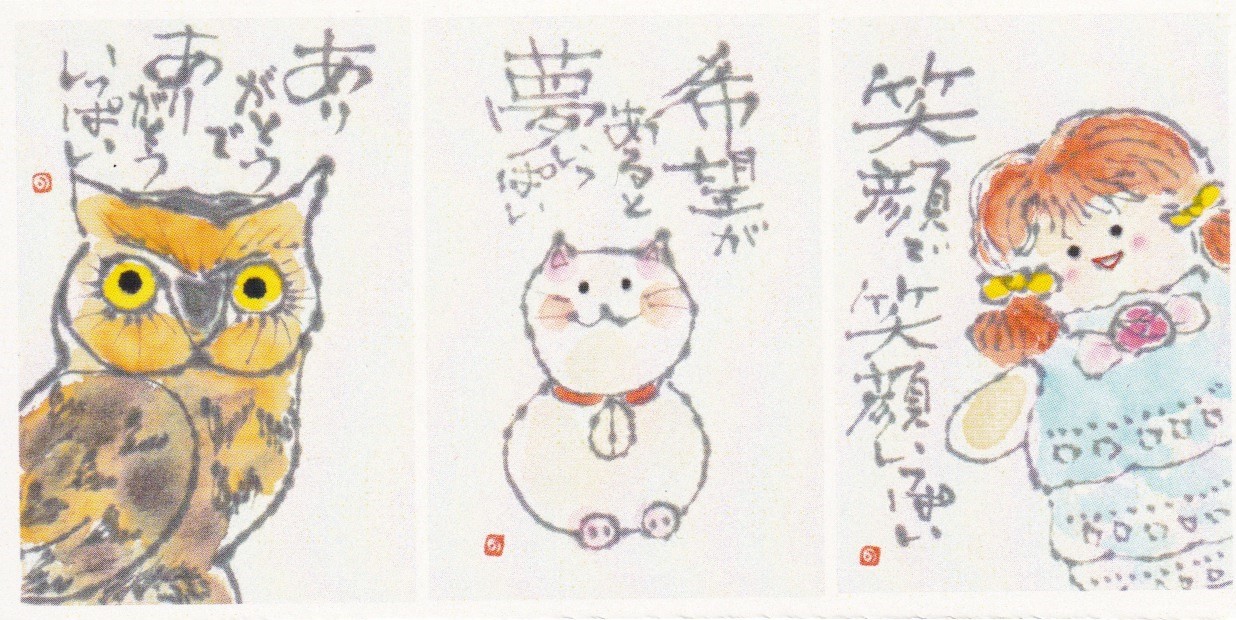 あり
がとう
で
あり
がとう
いっぱい
希望が
あると
夢いっぱい
笑顔で笑顔いっぱい